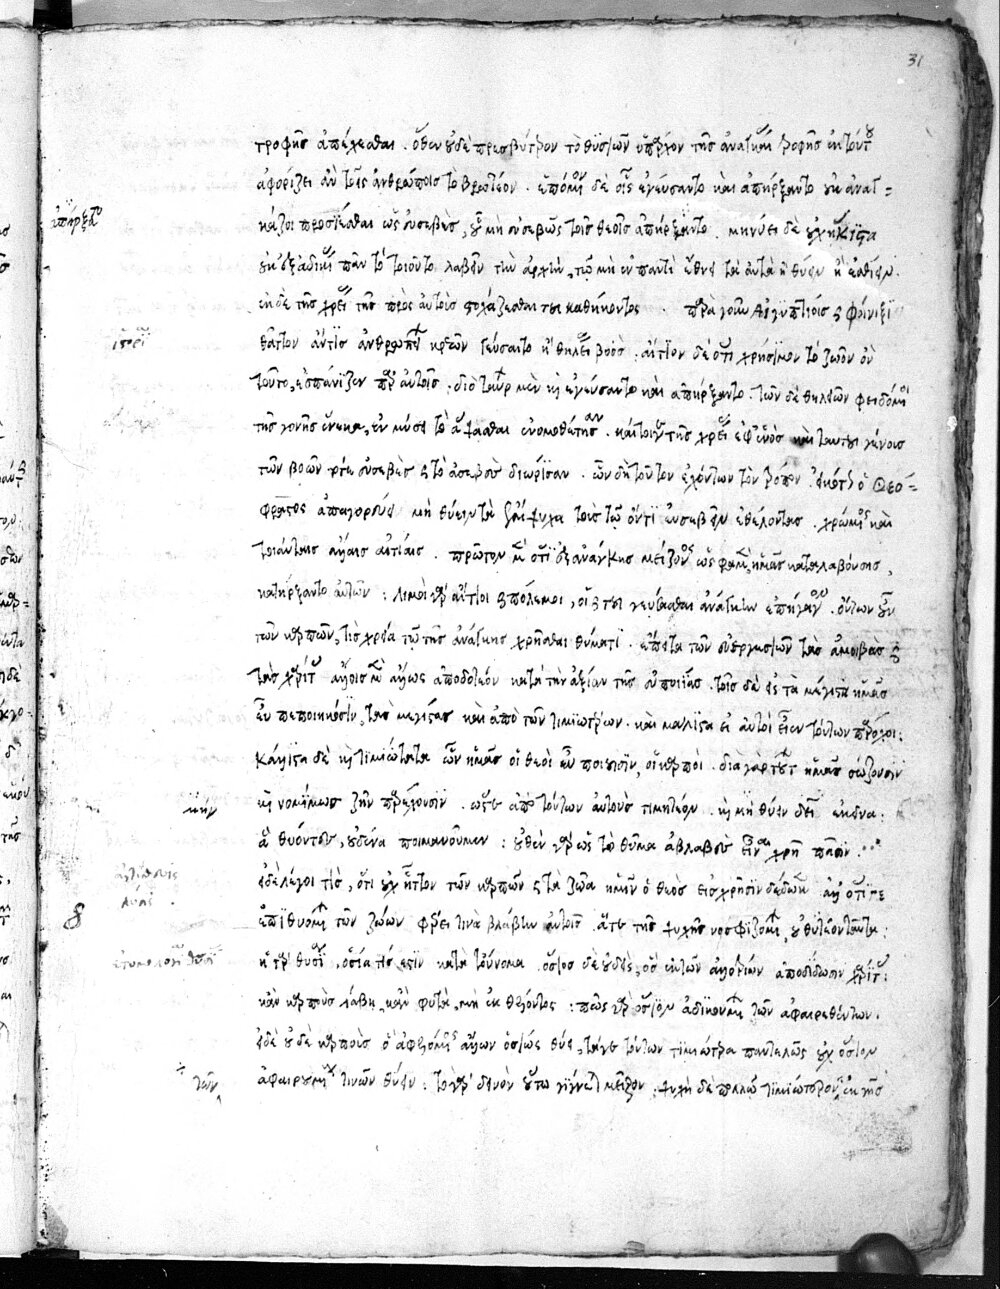 31
τροφῆς ἀπέχεσθαι. ὅθεν οὐδὲ πρεσβύτερον τὸ θυσιῶν ὑπάρχον τῆς ἀναγκαίας τροφῆς ἐκ τούτου
ἀφορίζει ἂν τοῖς ἀνθρώποις τὸ βρωτέον. ἑπόμενον δὲ οἷς ἐγεύσαντο καὶ ἀπήρξαντο οὐκ ἀναγ=
ἀπήρξαντο
κάζοι προσίεσθαι ὡς εὐσεβὲς, οὗ μὴ εὐσεβῶς τοῖς θεοῖς ἀπήρξαντο. μηνύει δὲ οὐχ ἥκιστα
τοῦ ἐξ ἀδικίας πᾶν τὸ τοιοῦτο λαβεῖν τὴν ἀρχὴν, τῷ μὴ ἐν παντὶ ἔθνει τὰ αὐτὰ ἢ θύειν ἢ ἐσθίειν.
ἐκ δὲ τῆς χρείας τῆς πρὸς αὐτοὺς στοχάζεσθαι τοῦ καθήκοντος. παρὰ γοῦν Αἰγυπτίοις καὶ Φοίνιξι
ἱστορία
θᾶττον ἄν τις ἀνθρωπείων κρεῶν γεύσαιτο ἢ θηλείας βοός. αἴτιον δὲ ὅτι χρήσιμον τὸ ζῷον ὂν
τοῦτο, ἐσπάνιζεν παρ' αὐτοῖς. διὸ ταύρων μὲν καὶ ἐγεύσαντο καὶ ἀπήρξαντο. τῶν δὲ θηλειῶν φειδόμενοι
τῆς γονῆς ἕνεκα, ἐν μύσει τὸ ἅψασθαι ἐνομοθέτησαν. καίτοι τῆς χρείας ἐφ' ἑνὸς καὶ ταυτοῦ γένους
τῶν βοῶν τό τε εὐσεβὲς καὶ τὸ ἀσεβὲς διώρισαν. ὧν δὴ τοῦτον ἐχόντων τὸν τρόπον. εἰκότως ὁ Θεό=
φραστος ἀπαγορεύει μὴ θύειν τὰ ἔμψυχα τοὺς τῷ ὄντι εὐσεβεῖν ἐθέλοντας. χρώμενος καὶ
τοιαύταις ἄλλαις αἰτίαις. πρῶτον μὲν ὅτι ἐξ ἀνάγκης μείζονος ὥς φαμεν, ἡμᾶς καταλαβούσης,
κατήρξαντο αὐτῶν: λιμοὶ γὰρ αἴτιοι καὶ πόλεμοι, οἳ καὶ τοῦ γεύσασθαι ἀνάγκην ἐπήγαγον. ὄντων οὖν
τῶν καρπῶν, τίς χρεία τῷ τῆς ἀνάγκης χρῆσθαι θύματι. ἔπειτα τῶν εὐεργεσιῶν τὰς ἀμοιβὰς καὶ
τὰς χάριτας ἄλλοις μὲν ἄλλως ἀποδοτέον κατὰ τὴν ἀξίαν τῆς εὐποιίας. τοῖς δὲ εἰς τὰ μέγιστα ἡμᾶς
εὖ πεποιηκόσιν, τὰς μεγίστας καὶ ἀπὸ τῶν τιμιωτέρων. καὶ μάλιστα εἰ αὐτοὶ εἶεν τούτων πάροχοι:
κάλλιστα δὲ καὶ τιμιώτατα ὧν ἡμᾶς οἱ θεοὶ εὖ ποιοῦσιν, οἱ καρποί. διὰ γὰρ τούτων ἡμᾶς σώζουσιν
μὴν
καὶ νομίμως ζῆν παρέχουσιν. ὥστε ἀπὸ τούτων αὐτοὺς τιμητέον. καὶ μὴ θύειν δεῖ ἐκεῖνα.
ἃ θύοντες, οὐδένα ποιμανοῦμεν: οὐθὲν γὰρ ὡς τὸ θῦμα ἀβλαβὲς εἶναι χρὴ πᾶσιν.
εἰ δὲ λέγοι τίς, ὅτι οὐχ ἧττον τῶν καρπῶν καὶ τὰ ζῶα ἡμῖν ὁ θεὸς εἰς χρῆσιν δέδωκεν ἀλλ' ὅτι γε
ἐπιθυομένων τῶν ζώων φέρει τινὰ βλάβην αὐτοῖς ἅτε τῆς ψυχῆς νοσφιζομένων, οὐ θυτέον ταῦτα:
ἐτυμολογία θυσίας
ἡ γὰρ θυσία, ὁσία τίς ἐστιν κατὰ τοὔνομα. ὅσιος δὲ οὐδεὶς, ὃς ἐκ τῶν ἀλλοτρίων ἀποδίδωσιν χάριτας:
κἂν καρποὺς λάβῃ, κἂν φυτὰ, μὴ ἐκ θέλοντος: πῶς γὰρ ὅσιον ἀδικουμένων τῶν ἀφαιρεθέντων.
εἰ δὲ οὐδὲ καρποὺς ὁ ἀφελόμενος ἄλλων ὁσίως θύει, τά γε τούτων τιμιώτερα παντελῶς οὐχ ὅσιον
ἀφαιρουμένους τινῶν θύειν: τὸ γὰρ δεινὸν οὕτω γίγνεται μεῖζον. ψυχὴ δὲ πολλῷ τιμιώτερον ἐκ γῆς
τῶν